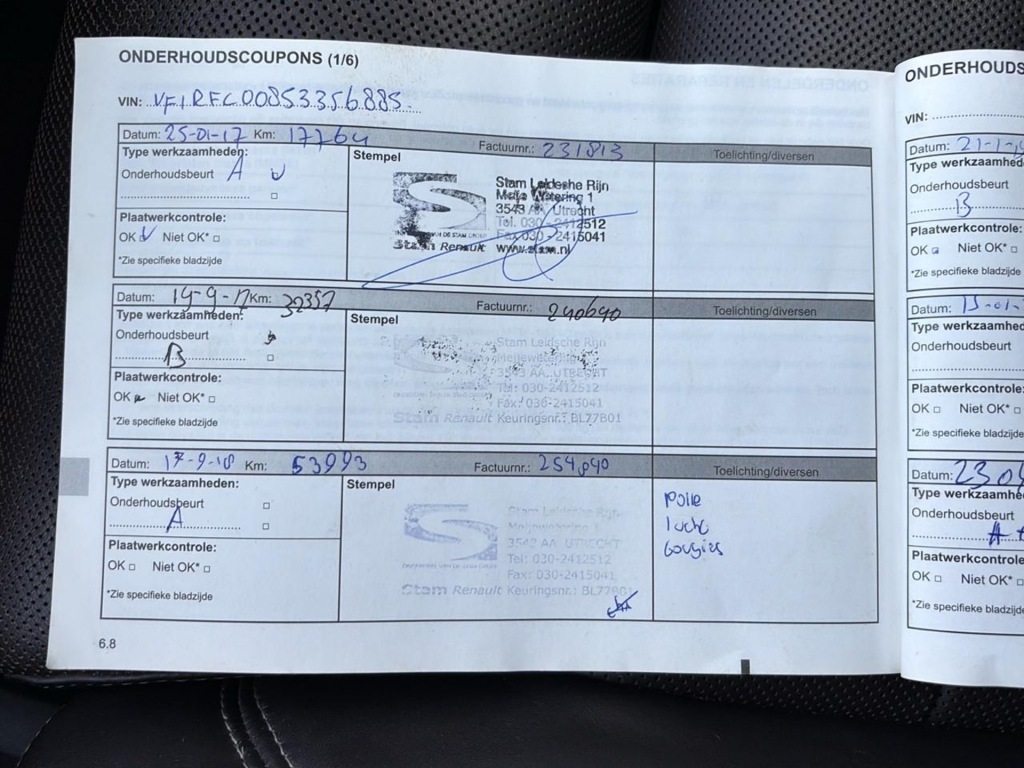 ONDERHOUDSCOUPONS (1/6)
VIN: VF1RFC00853356885
Datum: 25-01-17 Km: 17764 Factuurnr.: 231813 Toelichting/diversen
Type werkzaamheden:
Onderhoudsbeurt A
Plaatwerkcontrole:
OK Niet OK*
*Zie specifieke bladzijde
Stempel
Stam Leidsche Rijn
Wetering 1
3543 AA Utrecht
Tel. 030-2412512
Fax 030-2415041
www.stam.nl
Stam Renault
Datum: 14-9-17 Km: 32357 Factuurnr.: 240640 Toelichting/diversen
Type werkzaamheden:
Onderhoudsbeurt
B
Plaatwerkcontrole:
OK Niet OK*
*Zie specifieke bladzijde
Stempel
Stam Leidsche Rijn
3543 AA UTRECHT
Tel: 030-2412512
Fax: 030-2415041
Stam Renault Keuringsnr.: BL77B01
Datum: 17-9-18 Km: 53993 Factuurnr.: 254840 Toelichting/diversen
Type werkzaamheden:
Onderhoudsbeurt
A
Plaatwerkcontrole:
OK Niet OK*
*Zie specifieke bladzijde
Stempel
Stam Leidsche Rijn
3543 AA UTRECHT
Tel: 030-2412512
Fax: 030-2415041
Stam Renault Keuringsnr.: BL77B01
lucht
bougies
6.8
ONDERHOUDS
VIN:
Datum: 21-1-
Type werkzaamhed
Onderhoudsbeurt
B
Plaatwerkcontrole:
OK Niet OK*
*Zie specifieke bladzijd
Datum: 15-01-
Type werkzaamhe
Onderhoudsbeurt
Plaatwerkcontrole:
OK Niet OK*
*Zie specifieke bladzijd
Datum: 23 0
Type werkzaamhe
Onderhoudsbeurt
A+
Plaatwerkcontrole
OK Niet OK*
*Zie specifieke bladzijd